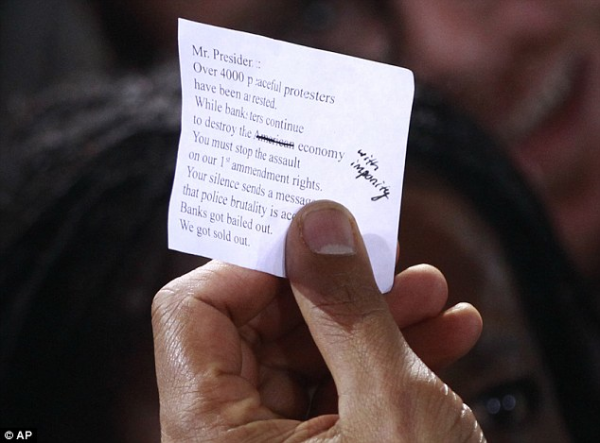 Mr. President:
Over 4000 peaceful protesters
have been arrested.
While banksters continue
to destroy the American economy
with
imponity
You must stop the assault
on our 1st ammendment rights.
Your silence sends a message
that police brutality is acc
Banks got bailed out.
We got sold out.
© AP